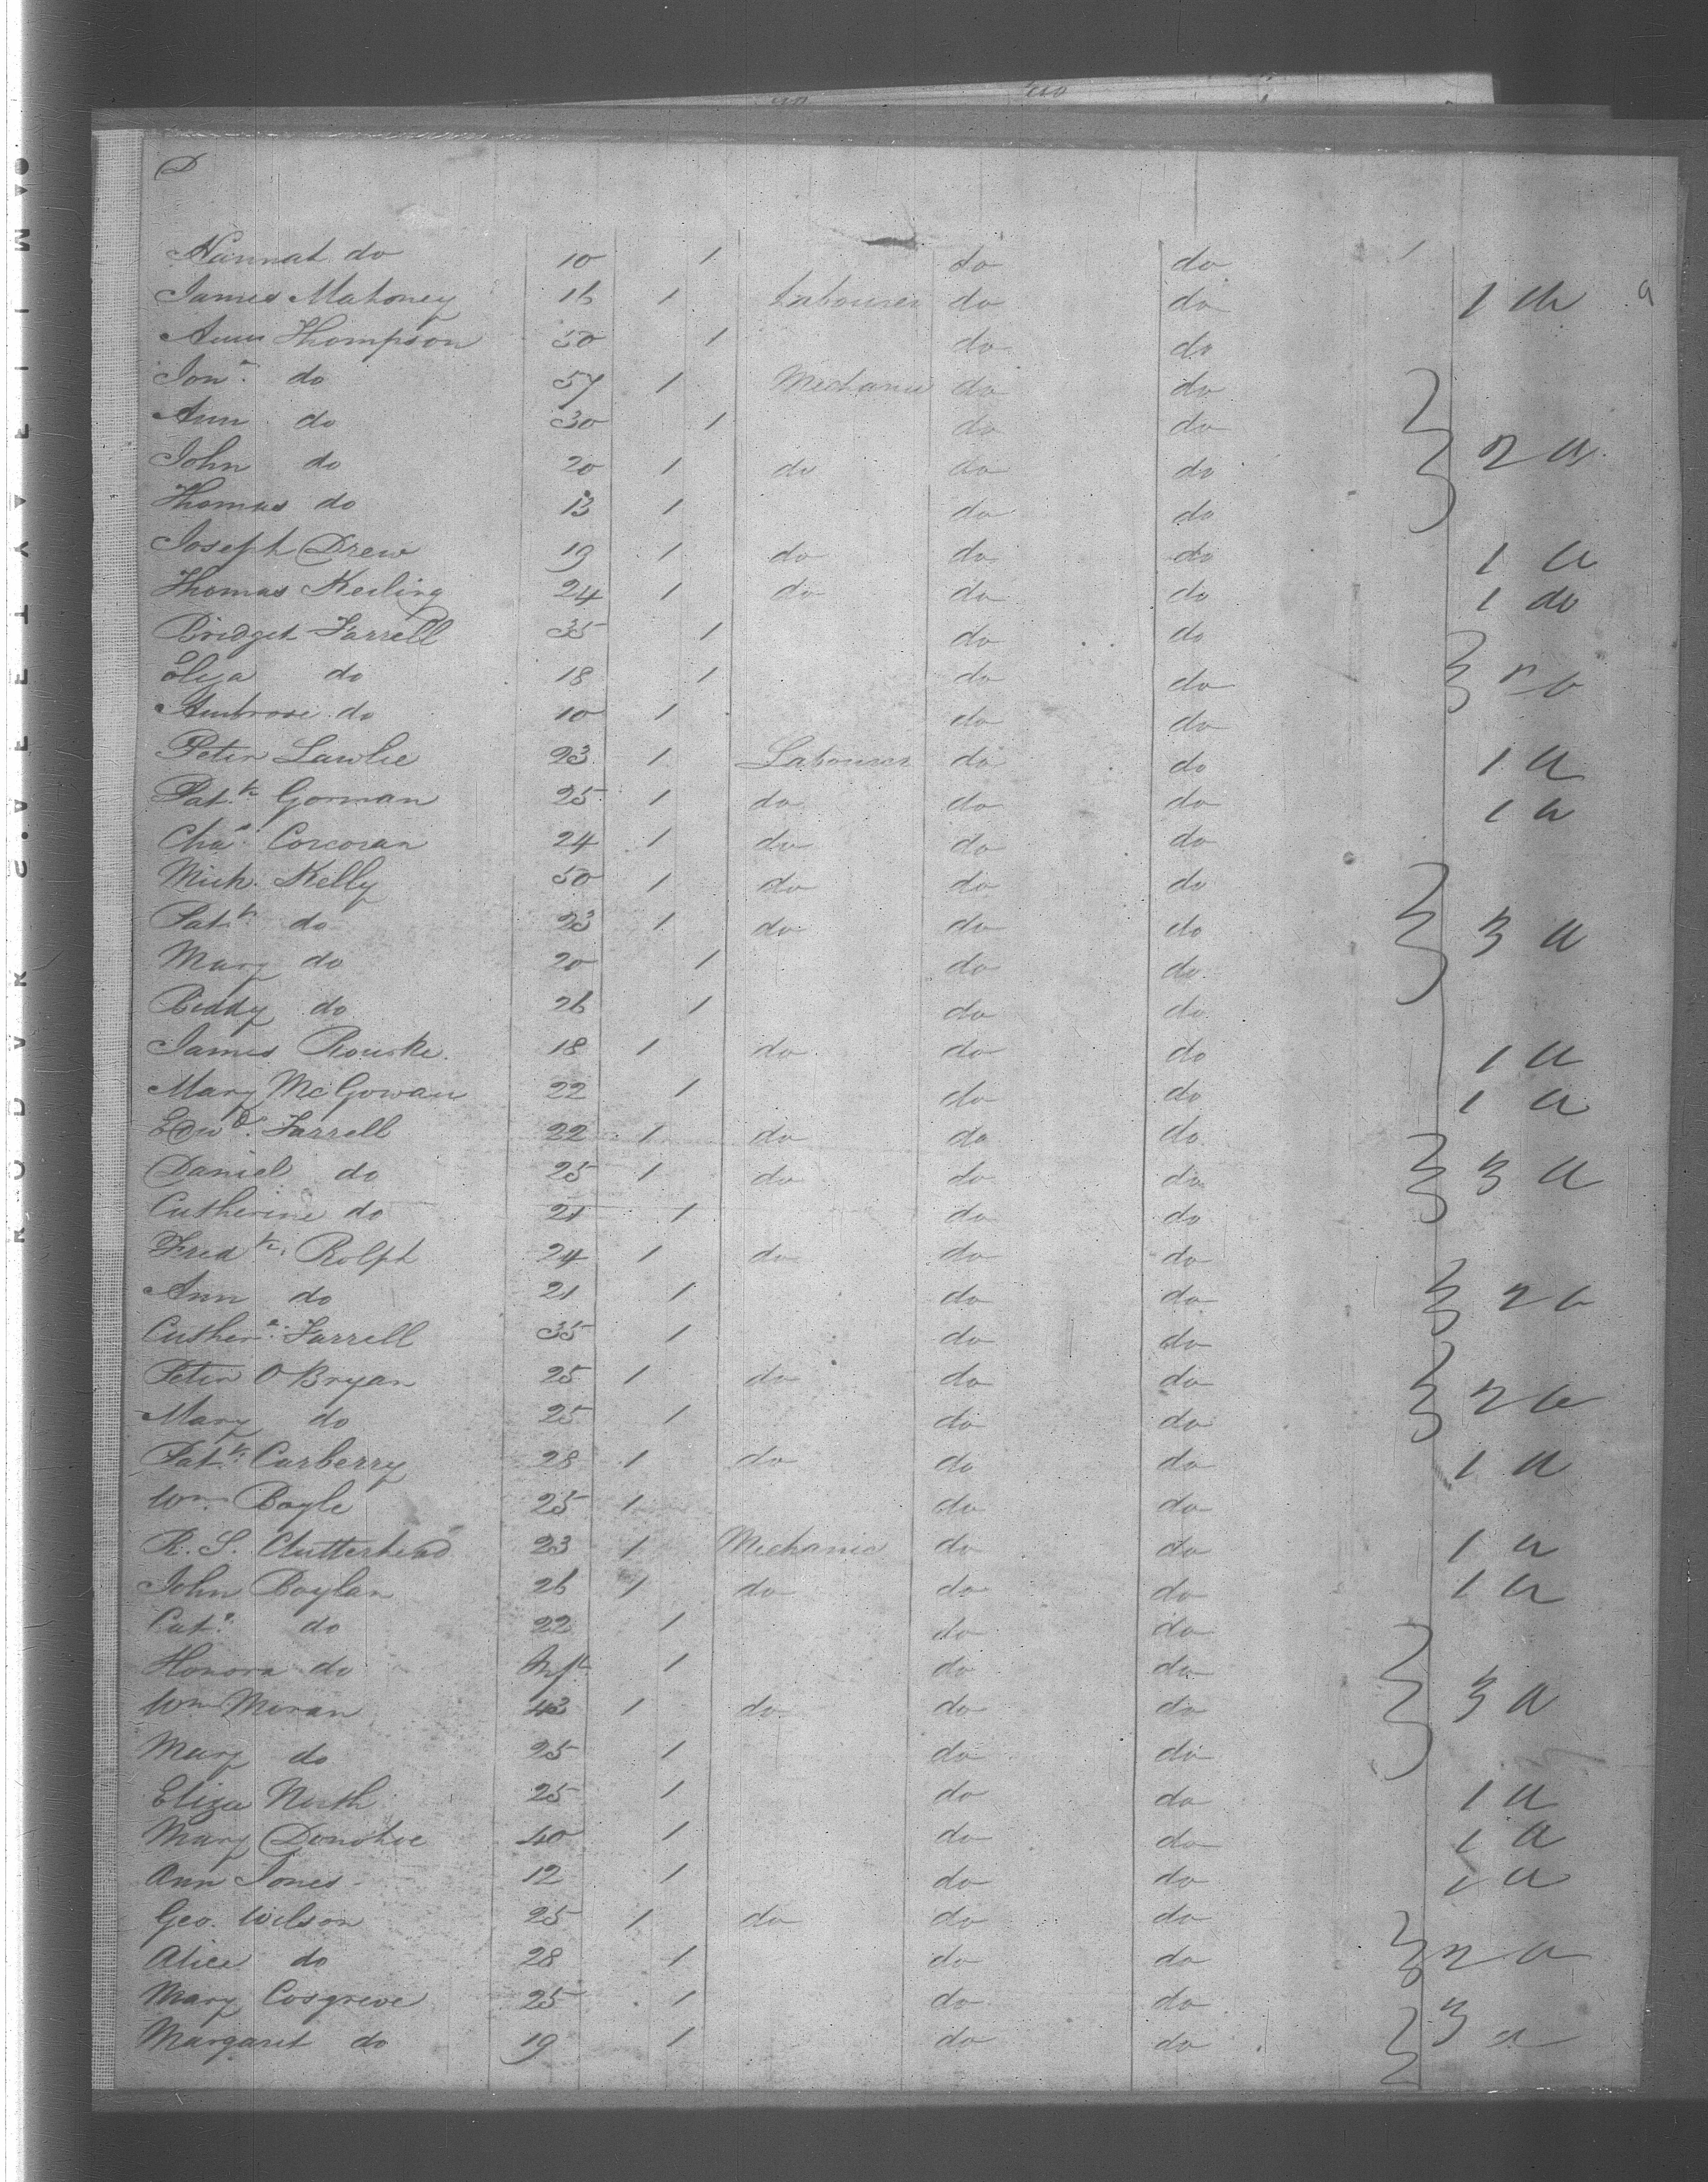 D
Hannah do 10 1 do do
James Mahoney 16 1 Labourer do do 1 do
Ann Thompson 50 1 do do
Jonn. do 57 1 Mechanic do do
Ann do 30 1 do do
John do 20 1 do do do 2 a
Thomas do 13 1 do do
Joseph Drew 19 1 do do do 1 a
Thomas Keiling 24 1 do do do 1 do
Bridget Farrell 35 1 do do
Eliza do 18 1 do do
Ambrose do 10 1 do do
Peter Lawlie 23 1 Labourer do do 1 a
Patk. Gorman 25 1 do do do 1 a
Chas. Corcoran 24 1 do do do
Mich. Kelly 50 1 do do do
Patk. do 23 1 do do do 3 a
Mary do 20 1 do do
Biddy do 26 1 do do
James Rourke 18 1 do do do 1 a
Mary McGowan 22 1 do do 1 a
Edwd. Farrell 22 1 do do do
Daniel do 25 1 do do do 3 a
Catherine do 21 1 do do
Fredk. Rolph 24 1 do do do
Ann do 21 1 do do 2 a
Cathere. Farrell 35 1 do do
Peter O'Bryan 25 1 do do do 2 a
Mary do 25 1 do do
Patk. Carberry 28 1 do do do 1 a
Wm. Boyle 25 1 do do
R. S. Clutterhead 23 1 Mechanic do do 1 a
John Boylan 26 1 do do do 1 a
Cate. do 22 1 do do
Honora do Inft 1 do do
Wm Moran 43 1 do do do 3 a
Mary do 25 1 do do
Eliza North 25 1 do do 1 a
Mary Donohoe 40 1 do do 1 a
Ann Jones 12 1 do do 1 a
Geo. Wilson 25 1 do do do
Alice do 28 1 do do 2 a
Mary Cosgreve 25 1 do do 3 a
Margaret do 19 1 do do